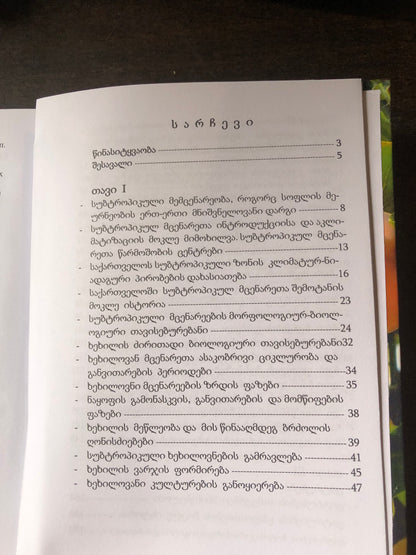 სარჩევი
წინასიტყვაობა ------------------------------------------------ 3
შესავალი ------------------------------------------------------ 5
თავი I
- სუბტროპიკული მემცენარეობა, როგორც სოფლის მე-
ურნეობის ერთ-ერთი მნიშვნელოვანი დარგი -------- 8
- სუბტროპიკულ მცენარეთა ინტროდუქციისა და აკლი-
მატიზაციის მოკლე მიმოხილვა. სუბტროპიკულ მცენა-
რეთა წარმოშობის ცენტრები --------------------------13
- საქართველოს სუბტროპიკული ზონის კლიმატურ-ნი-
ადაგური პირობების დახასიათება --------------------16
- საქართველოში სუბტროპიკულ მცენარეთა შემოტანის
მოკლე ისტორია ------------------------------------------ 23
- სუბტროპიკული მცენარეების მორფოლოგიურ-ბიოლ-
ოგიური თავისებურებანი -------------------------------- 24
- ხეხილის ძირითადი ბიოლოგიური თავისებურებანი32
- ხეხილოვან მცენარეთა ასაკობრივი ციკლურობა და
განვითარების პერიოდები ------------------------------ 34
- ხეხილოვნი მცენარეების ზრდის ფაზები ------------ 35
- ნაყოფის გამონასკვის, განვითარების და მომწიფების
ფაზები ------------------------------------------------------ 38
- ხეხილის მეწლეობა და მის წინააღმდეგ ბრძოლის
ღონისძიებები ---------------------------------------------- 39
- სუბტროპიკული ხეხილოვნების გამრავლება ----------41
- ხეხილის ვარჯის ფორმირება ---------------------------45
- ხეხილოვანი კულტურების განოყიერება --------------47